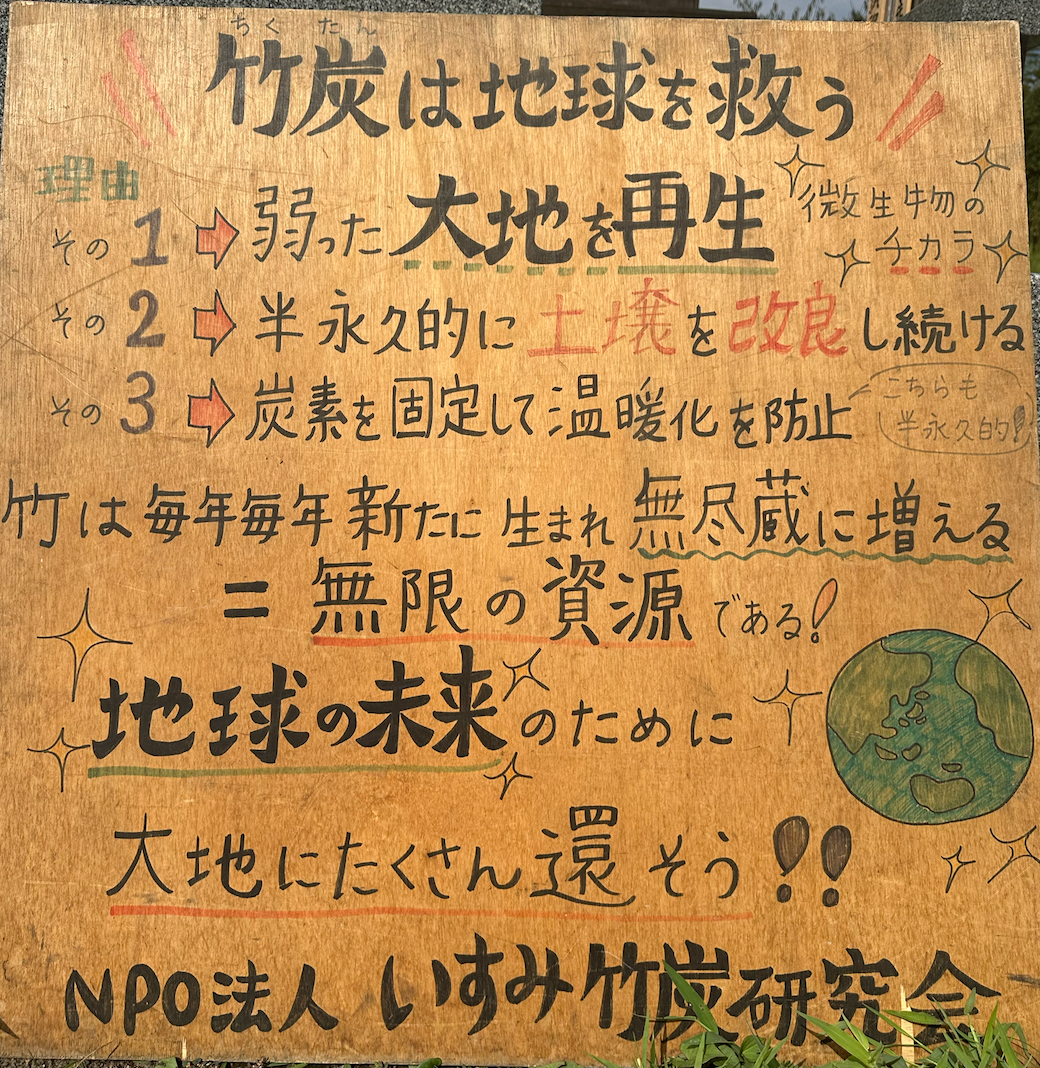 ちくたん
竹炭は地球を救う
理由
その1 ⇨ 弱った大地を再生 微生物のチカラ
その2 ⇨ 半永久的に土壌を改良し続ける
その3 ⇨ 炭素を固定して温暖化を防止 こちらも半永久的!
竹は毎年毎年新たに生まれ無尽蔵に増える
=無限の資源である!
地球の未来のために
大地にたくさん還そう!!
NPO法人いすみ竹炭研究会